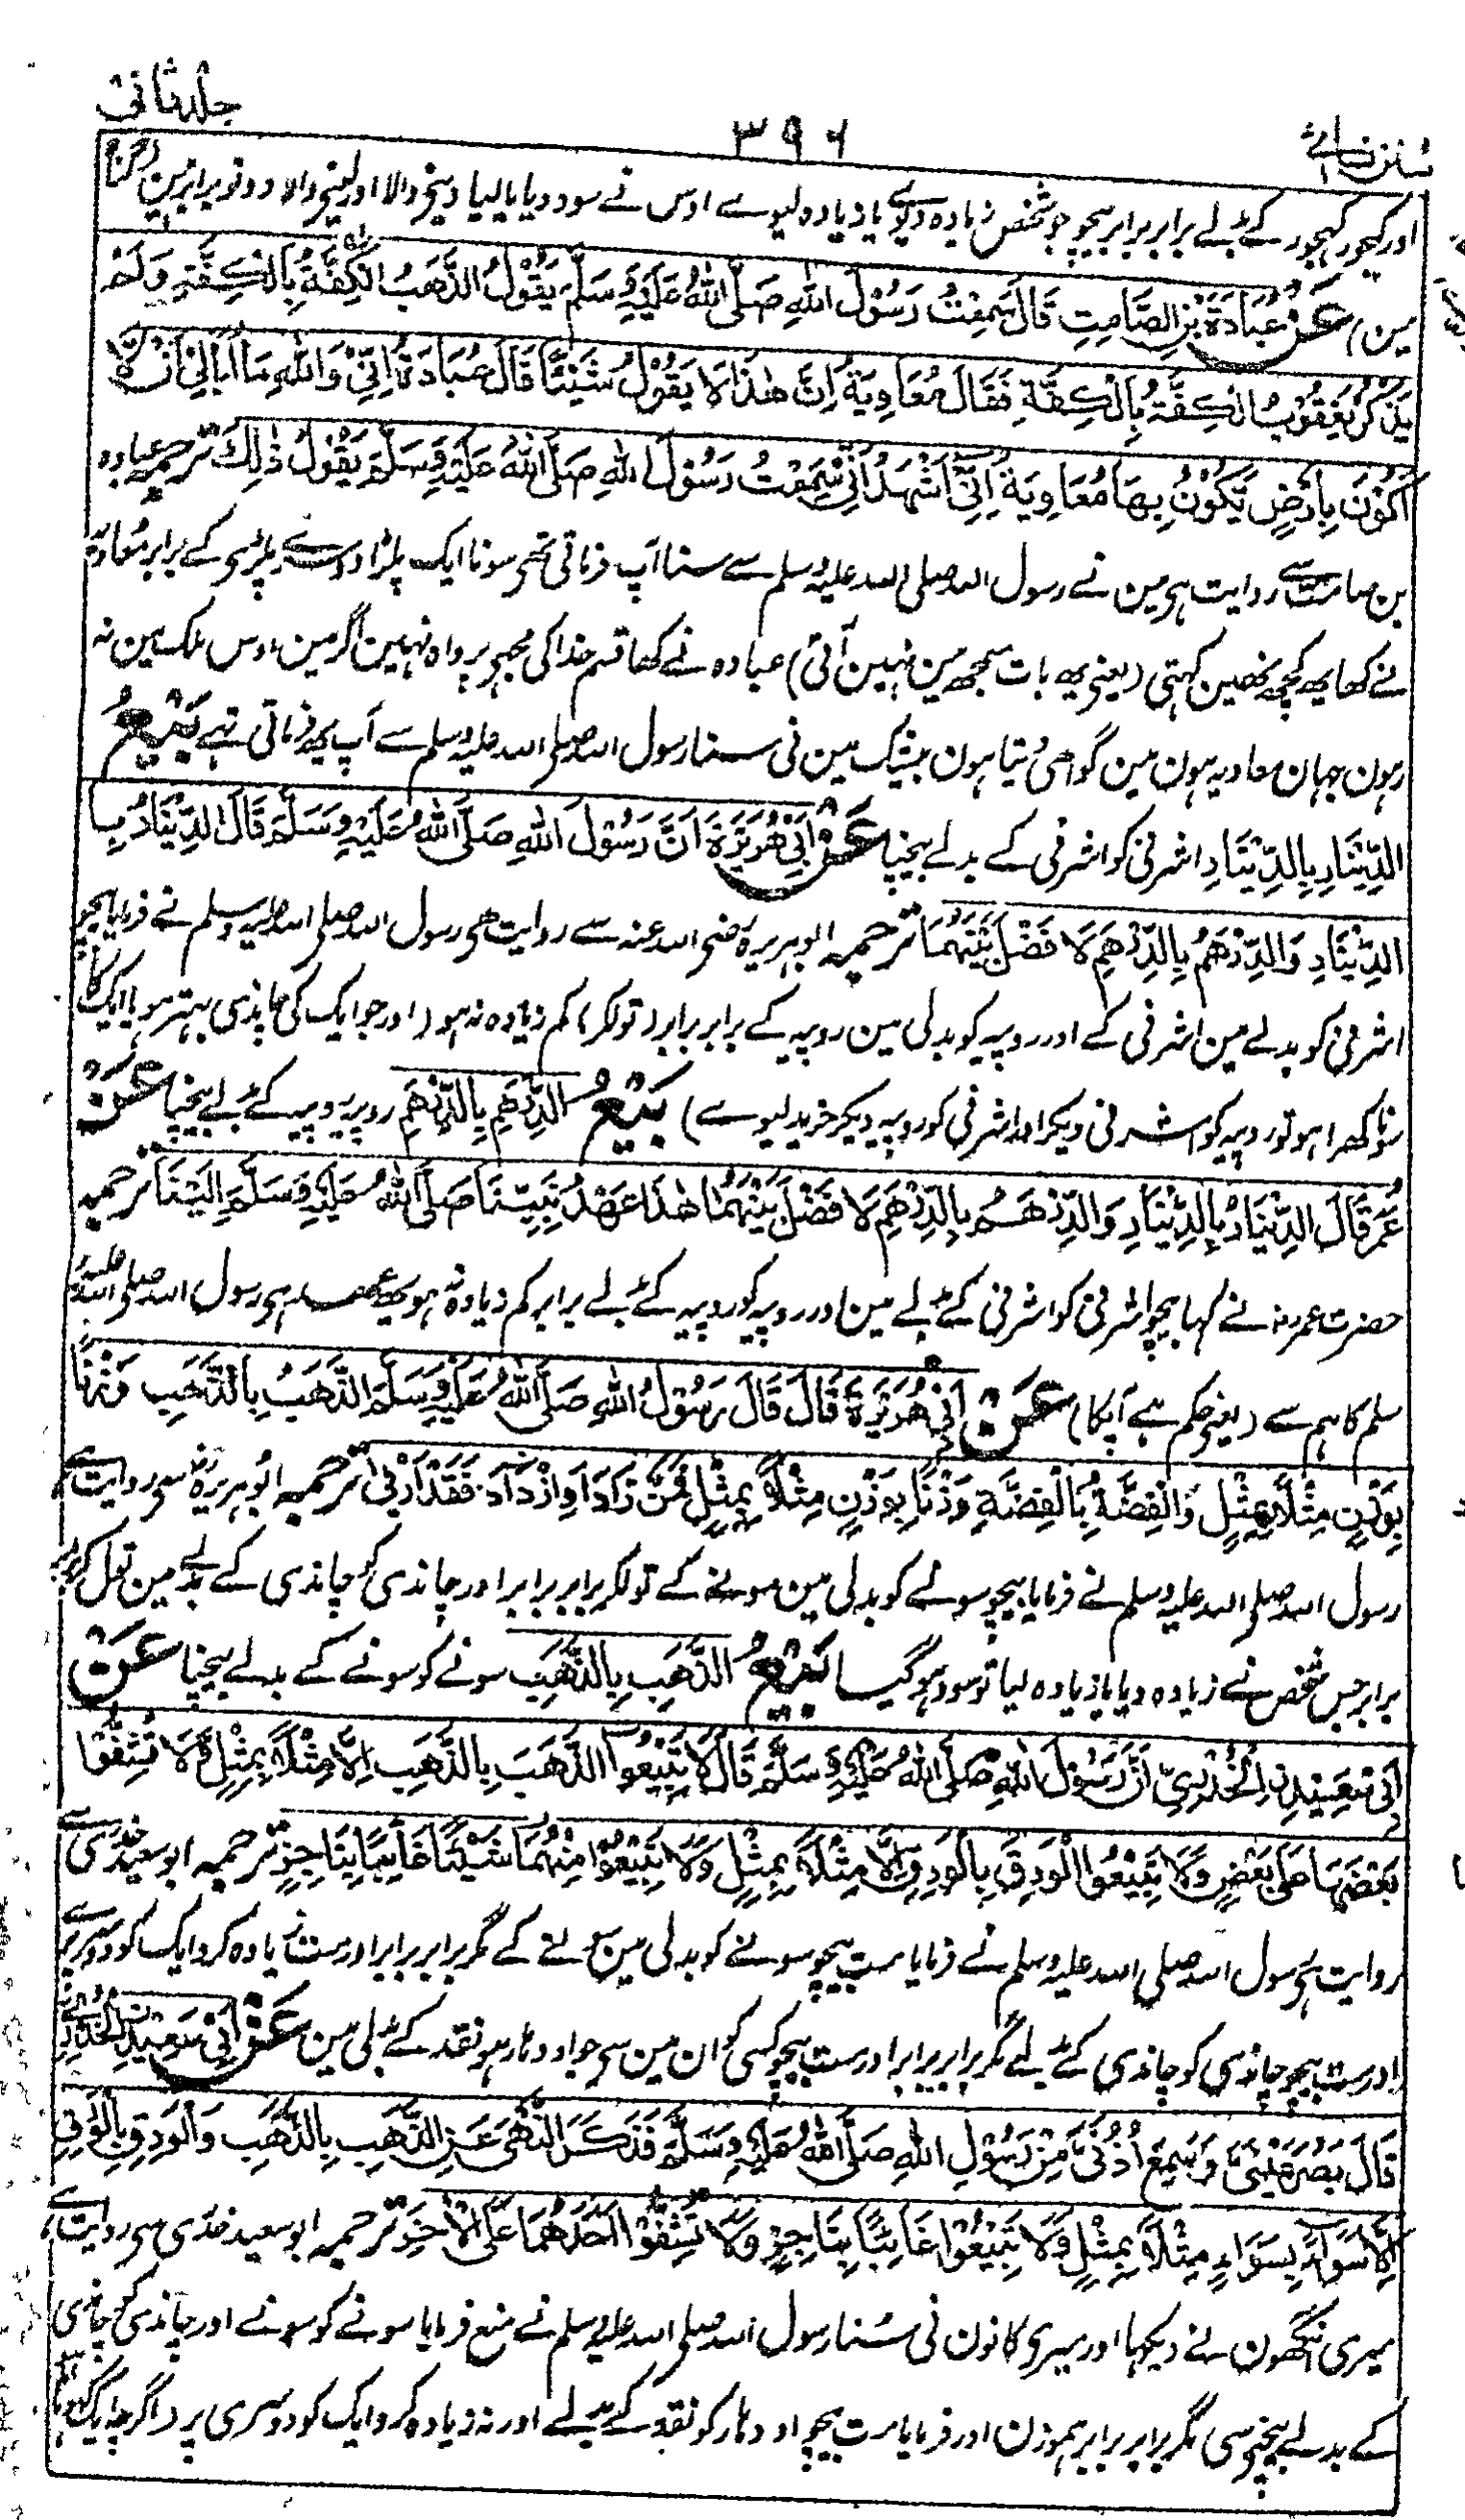 سنن نسائی
۳۹۶
جلد ثانی
اور کھجور کھجور کے بدلے برابر برابر بیچو جو شخص زیادہ دیوے یا زیادہ لیوے اوس نے سود دیا یا لیا دینے والا اور لینے والا دونو برابر ہین گناہ
مین) عَنْ عُبَادَةَ بْنِ الصَّامِتِ قَالَ سَمِعْتُ رَسُوْلَ اللهِ صَلَّى اللهُ عَلَيْهِ وَسَلَّمَ يَقُوْلُ الذَّهَبُ الْكِفَّةُ بِالْكِفَّةِ وَلَمْ
يَذْكُرْ يَعْقُوْبُ الْكِفَّةُ بِالْكِفَّةِ فَقَالَ مُعَاوِيَةُ اِنَّ هٰذَا لَا يَقُوْلُ شَيْئًا قَالَ عُبَادَةُ اِنِّيْ وَاللهِ مَا اُبَالِيْ اَنْ لَا
اَكُوْنَ بِاَرْضٍ يَكُوْنُ بِهَا مُعَاوِيَةُ اِنِّيْ اَشْهَدُ اَنِّيْ سَمِعْتُ رَسُوْلَ اللهِ صَلَّى اللهُ عَلَيْهِ وَسَلَّمَ يَقُوْلُ ذٰلِكَ ترجمہ عبادہ
بن صامت سے روایت ہی مین نے رسول اللہ صلی اللہ علیہ وسلم سے سنا آپ فرماتی تھی سونا ایک پلڑا دوسرے پلڑی کے برابر معاویہ
نے کہا یہ کچھ نہین کہتی (یعنی یہ بات سمجھ مین نہین آئی) عبادہ نے کہا قسم خدا کی مجھی پرواہ نہین اگر مین اوس ملک مین نہ
رہون جہان معاویہ ہون مین گواہی دیتا ہون بیشک مین نی سنا رسول اللہ صلی اللہ علیہ وسلم سے آپ یہ فرماتی تہے بَيْعُ
الدِّيْنَارِ بِالدِّيْنَارِ اشرفی کو اشرفی کے بدلے بیچنا عَنْ اَبِيْ هُرَيْرَةَ اَنَّ رَسُوْلَ اللهِ صَلَّى اللهُ عَلَيْهِ وَسَلَّمَ قَالَ الدِّيْنَارُ بِا
الدِّيْنَارِ وَالدِّرْهَمُ بِالدِّرْهَمِ لَا فَضْلَ بَيْنَهُمَا ترجمہ ابوہریرہ رضی اللہ عنہ سے روایت ہی رسول اللہ صلی اللہ علیہ وسلم نے فرمایا بیچو
اشرفی کو بدلے مین اشرفی کے اور روپیہ کو بدلی مین روپیہ کے برابر برابر (تولکر) کم زیادہ نہ ہو (اور جو ایک کی چاندی بہتر ہو یا ایک کا
سونا کھرا ہو تو روپیہ کو اشرفی دیکر اور اشرفی کو روپیہ دیکر خرید لیوے) بَيْعُ الدِّرْهَمِ بِالدِّرْهَمِ روپیہ روپیہ کے بدلے بیچنا عَنْ
عُمَرَ قَالَ الدِّيْنَارُ بِالدِّيْنَارِ وَالدِّرْهَمُ بِالدِّرْهَمِ لَا فَضْلَ بَيْنَهُمَا هٰذَا عَهْدُ نَبِيِّنَا صَلَّى اللهُ عَلَيْهِ وَسَلَّمَ اِلَيْنَا ترجمہ
حضرت عمر رضہ نے کہا بیچو اشرفی کو اشرفی کے بدلے مین اور روپیہ کو روپیہ کے بدلے برابر کم زیادہ نہ ہو یہ عہد ہی رسول اللہ صلی اللہ علیہ
سلم کا ہم سے (یعنی حکم ہے آپکا) عَنْ اَبِيْ هُرَيْرَةَ قَالَ قَالَ رَسُوْلُ اللهِ صَلَّى اللهُ عَلَيْهِ وَسَلَّمَ الذَّهَبُ بِالذَّهَبِ وَزْنًا
بِوَزْنٍ مِثْلًا بِمِثْلٍ وَالْفِضَّةُ بِالْفِضَّةِ وَزْنًا بِوَزْنٍ مِثْلًا بِمِثْلٍ فَمَنْ زَادَ اَوِ ازْدَادَ فَقَدْ اَرْبٰى ترجمہ ابوہریرہ سے روایت ہے
رسول اللہ صلی اللہ علیہ وسلم نے فرمایا بیچو سونے کو بدلی مین سونے کے تولکر برابر برابر اور چاندی کو چاندی کے بدلے مین تول کر
برابر جس شخص نے زیادہ دیا یا زیادہ لیا تو سود ہو گیا بَيْعُ الذَّهَبِ بِالذَّهَبِ سونے کو سونے کے بدلے بیچنا عَنْ
اَبِيْ سَعِيْدٍ الْخُدْرِيِّ اَنَّ رَسُوْلَ اللهِ صَلَّى اللهُ عَلَيْهِ وَسَلَّمَ قَالَ لَا تَبِيْعُوا الذَّهَبَ بِالذَّهَبِ اِلَّا مِثْلًا بِمِثْلٍ وَلَا تُشِفُّوْا
بَعْضَهَا عَلٰى بَعْضٍ وَلَا تَبِيْعُوا الْوَرِقَ بِالْوَرِقِ اِلَّا مِثْلًا بِمِثْلٍ وَلَا تَبِيْعُوْا مِنْهُمَا شَيْئًا غَائِبًا بِنَاجِزٍ ترجمہ ابو سعید خدری سے
روایت ہی رسول اللہ صلی اللہ علیہ وسلم نے فرمایا مت بیچو سونے کو بدلی مین سونے کے مگر برابر برابر اور مت زیادہ کرو ایک کو دوسرے پر
اور مت بیچو چاندی کو چاندی کے بدلے مگر برابر برابر اور مت بیچو کسی کو ان مین سی جو اودہار ہو نقد کے بدلی مین عَنْ اَبِيْ سَعِيْدٍ الْخُدْرِيِّ
قَالَ بَصُرَ عَيْنَيَّ وَسَمِعَ اُذُنَيَّ مِنْ رَسُوْلِ اللهِ صَلَّى اللهُ عَلَيْهِ وَسَلَّمَ فَذَكَرَ النَّهْيَ عَنِ الذَّهَبِ بِالذَّهَبِ وَالْوَرِقِ بِالْوَرِقِ
اِلَّا سَوَاءً بِسَوَاءٍ مِثْلًا بِمِثْلٍ وَلَا تَبِيْعُوْا غَائِبًا بِنَاجِزٍ وَلَا تُشِفُّوْا اَحَدَهُمَا عَلَى الْاٰخَرِ ترجمہ ابو سعید خدری سی روایت ہے
میری آنکھون نے دیکھا اور میری کانون نی سنا رسول اللہ صلی اللہ علیہ وسلم نے منع فرمایا سونے کو سونے اور چاندی کو چاندی
کے بدلے بیچنے سی مگر برابر برابر ہموزن اور فرمایا مت بیچو اودہار کو نقد کے بدلے اور نہ زیادہ کرو ایک کو دوسری پر (اگرچہ ایک